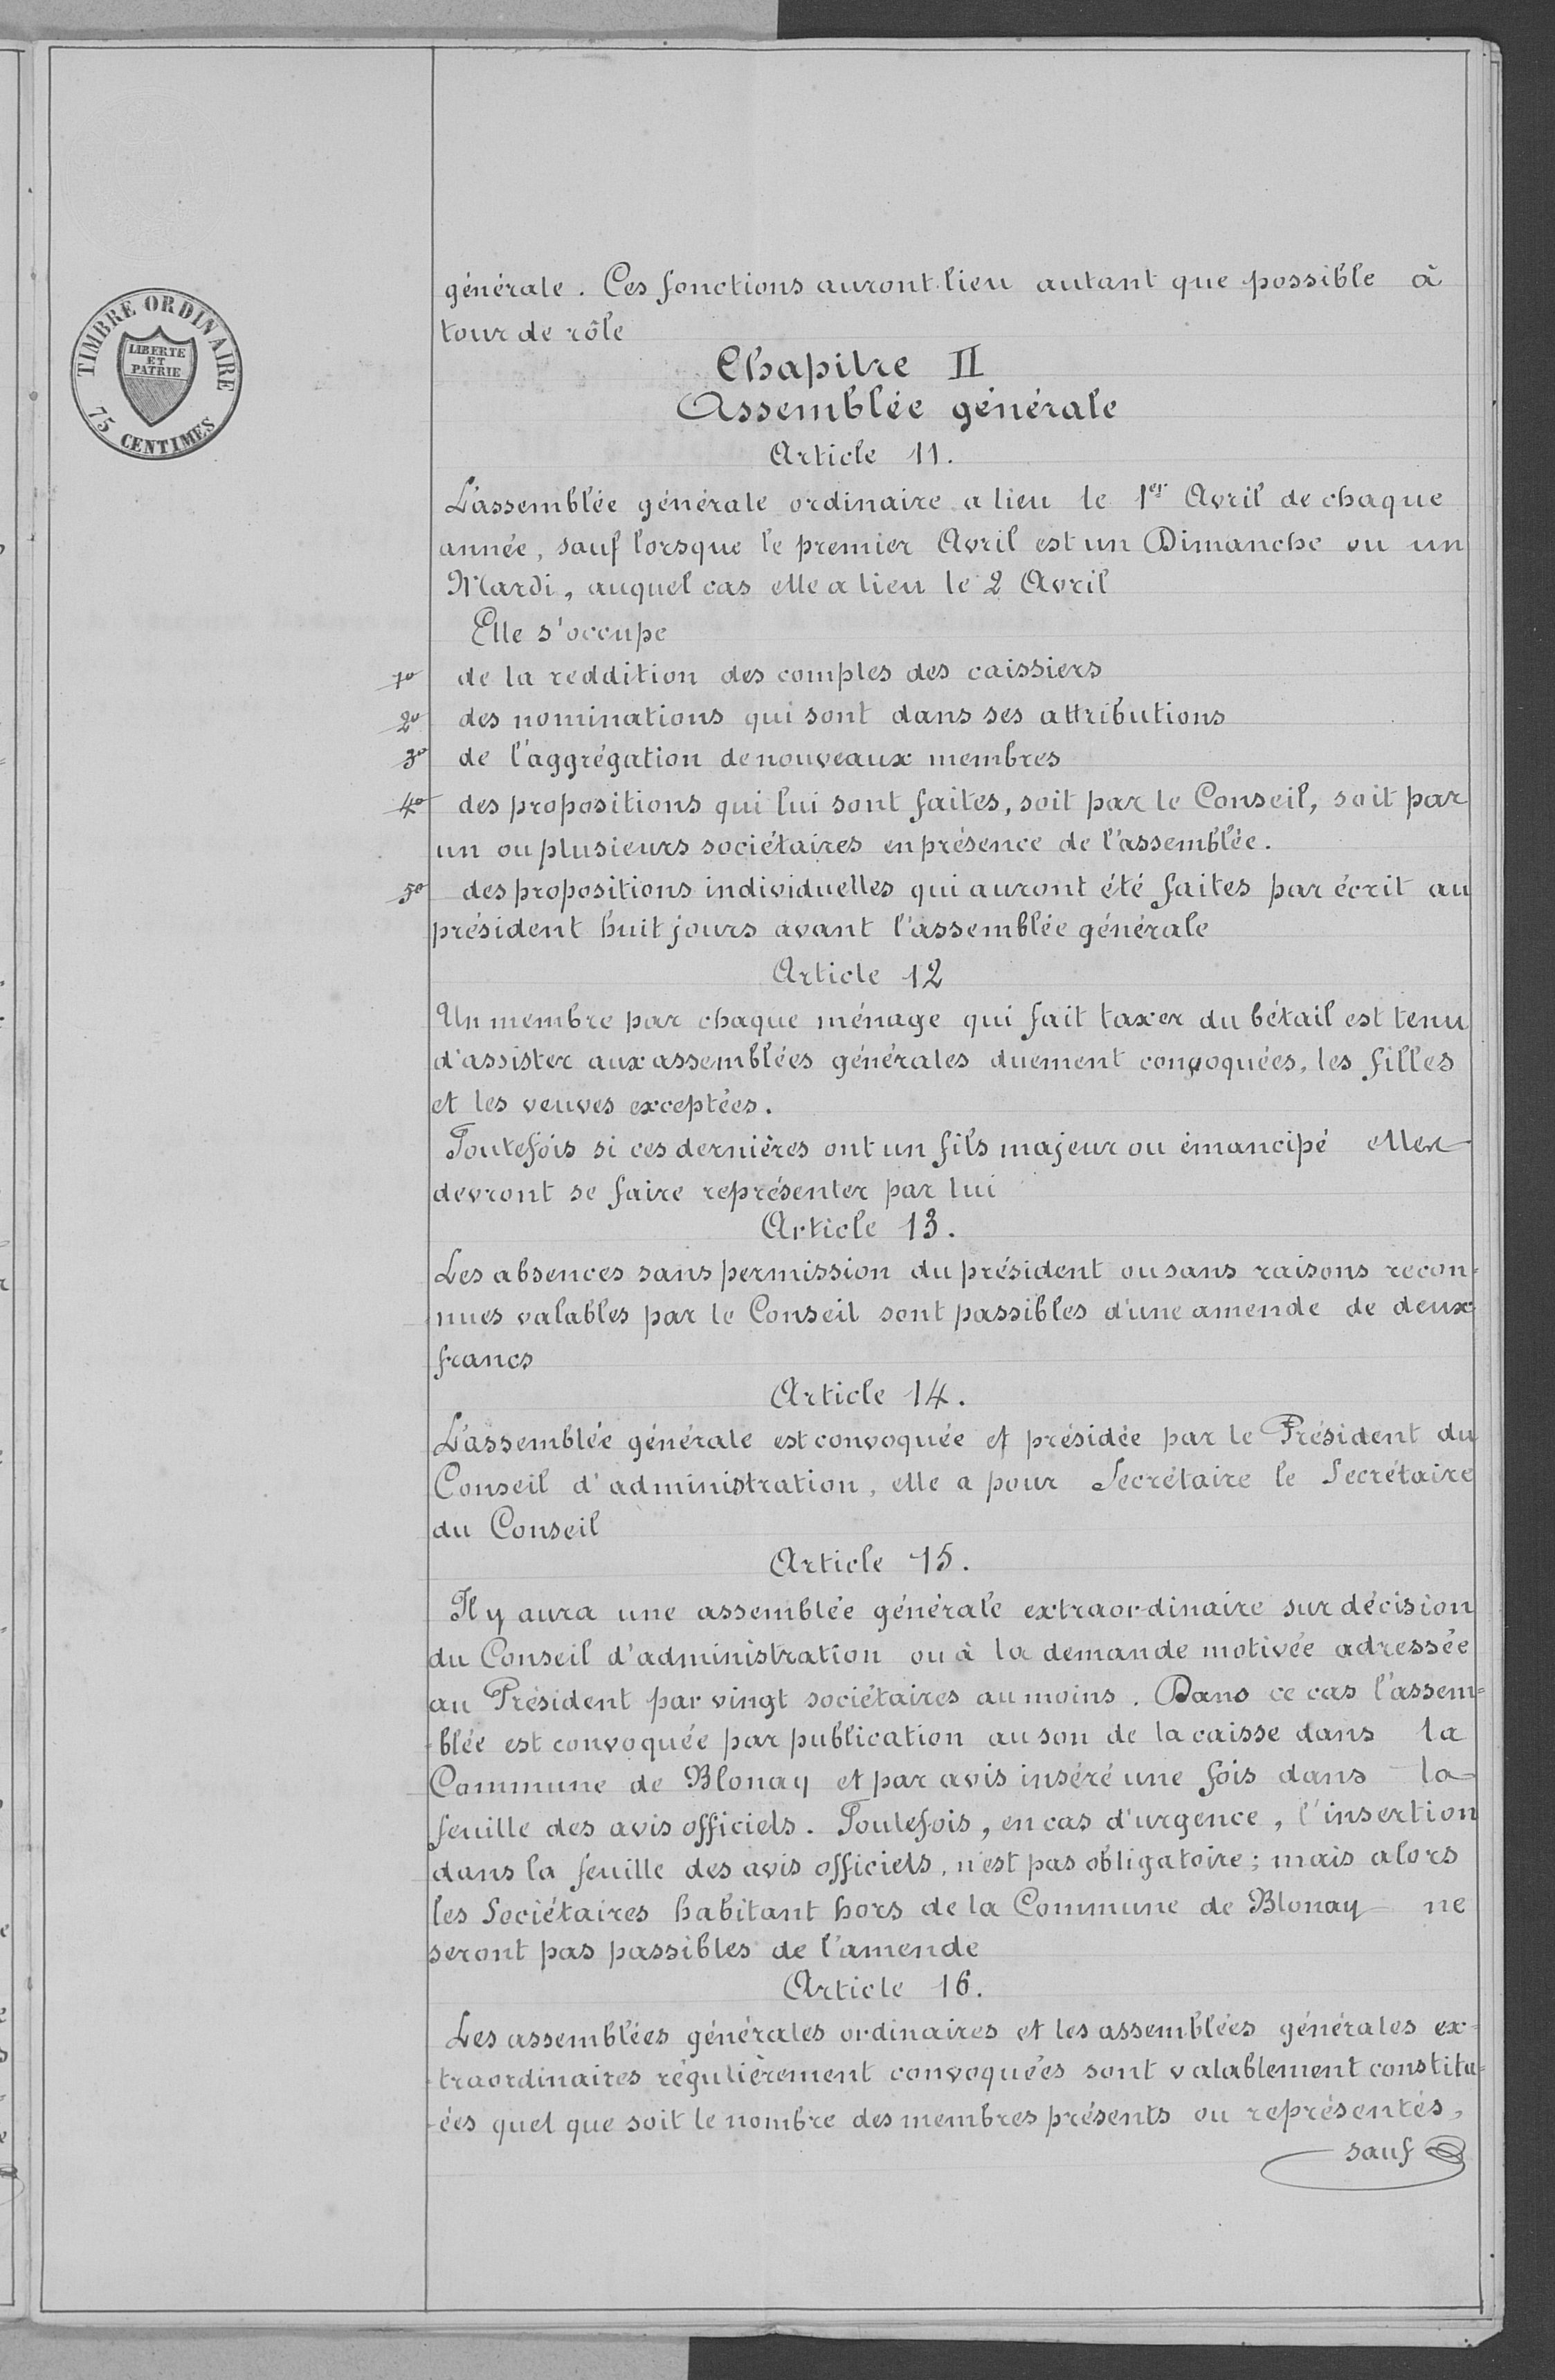 générale. Ces fonctions auront lieu autant que possible à
tour de rôle
TIMBRE ORDINAIRE
LIBERTE
ET
PATRIE
75 CENTIMES
Chapitre II
Assemblée générale
Article 11.
L'assemblée générale ordinaire a lieu le 1er Avril de chaque
année, sauf lorsque le premier Avril est un Dimanche ou un
Mardi, auquel cas elle a lieu le 2 Avril
Elle s'occupe
1º de la reddition des comptes des caissiers
2º des nominations qui sont dans ses attributions
3º de l'aggrégation de nouveaux membres
4º des propositions qui lui sont faites, soit par le Conseil, soit par
un ou plusieurs sociétaires en présence de l'assemblée.
5º des propositions individuelles qui auront été faites par écrit au
président huit jours avant l'assemblée générale
Article 12
Un membre par chaque ménage qui fait taxer du bétail est tenu
d'assister aux assemblées générales duement convoquées, les filles
et les veuves exceptées.
Toutefois si ces dernières ont un fils majeur ou émancipé elles
devront se faire représenter par lui
Article 13.
Les absences sans permission du président ou sans raisons recon=
nues valables par le Conseil sont passibles d'une amende de deux
francs
Article 14.
L'assemblée générale est convoquée et présidée par le Président du
Conseil d'administration, elle a pour Secrétaire le Secrétaire
du Conseil
Article 15.
Il y aura une assemblée générale extraordinaire sur décision
du Conseil d'administration ou à la demande motivée adressée
au Président par vingt sociétaires au moins. Dans ce cas l'assem=
blée est convoquée par publication au son de la caisse dans la
Commune de Blonay et par avis inséré une fois dans la
feuille des avis officiels. Toutefois, en cas d'urgence, l'insertion
dans la feuille des avis officiels, n'est pas obligatoire; mais alors
les Sociétaires habitant hors de la Commune de Blonay ne
seront pas passibles de l'amende
Article 16.
Les assemblées générales ordinaires et les assemblées générales ex=
traordinaires régulièrement convoquées sont valablement constitu=
ées quel que soit le nombre des membres présents ou représentés,
sauf